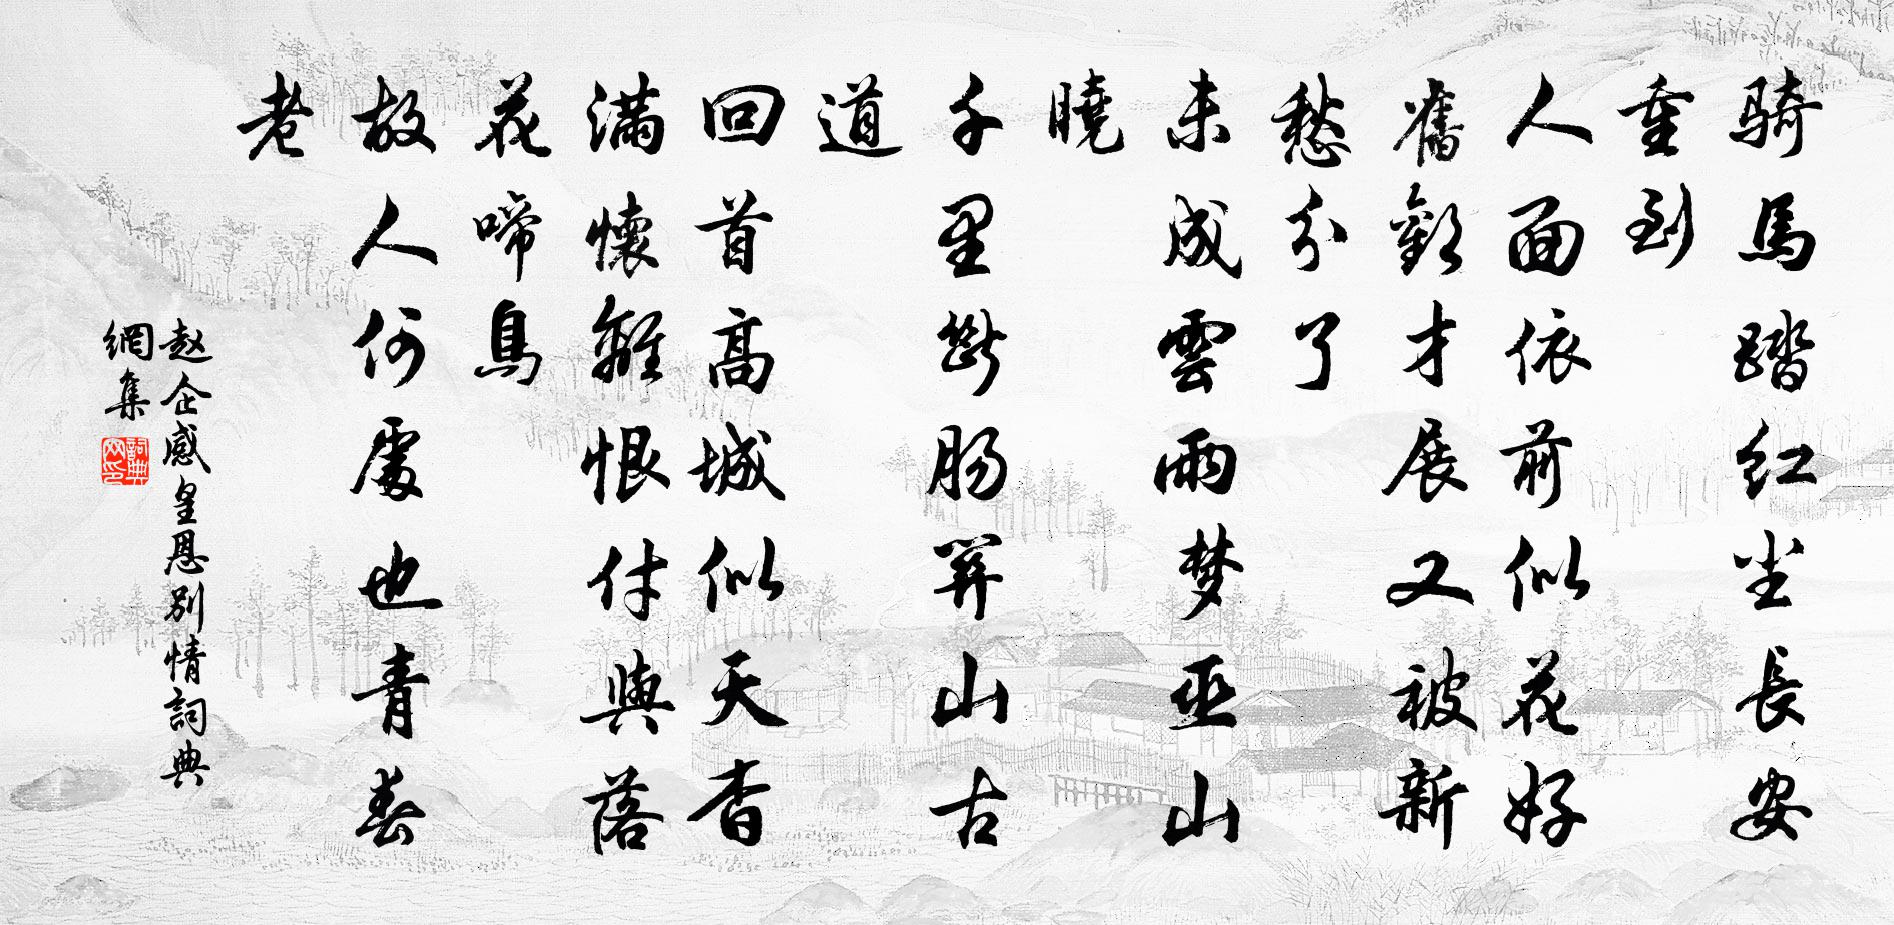 骑馬踏红尘長安
重到
人面依前似花好
舊歡才展又被新
愁分了
未成雲雨梦巫山
曉
千里断肠関山古
道
回首高城似天杳
满懷離恨付與落
花啼鳥
故人何處也青春
老
赵企感皇恩别情詞典
網集
詞典
网印